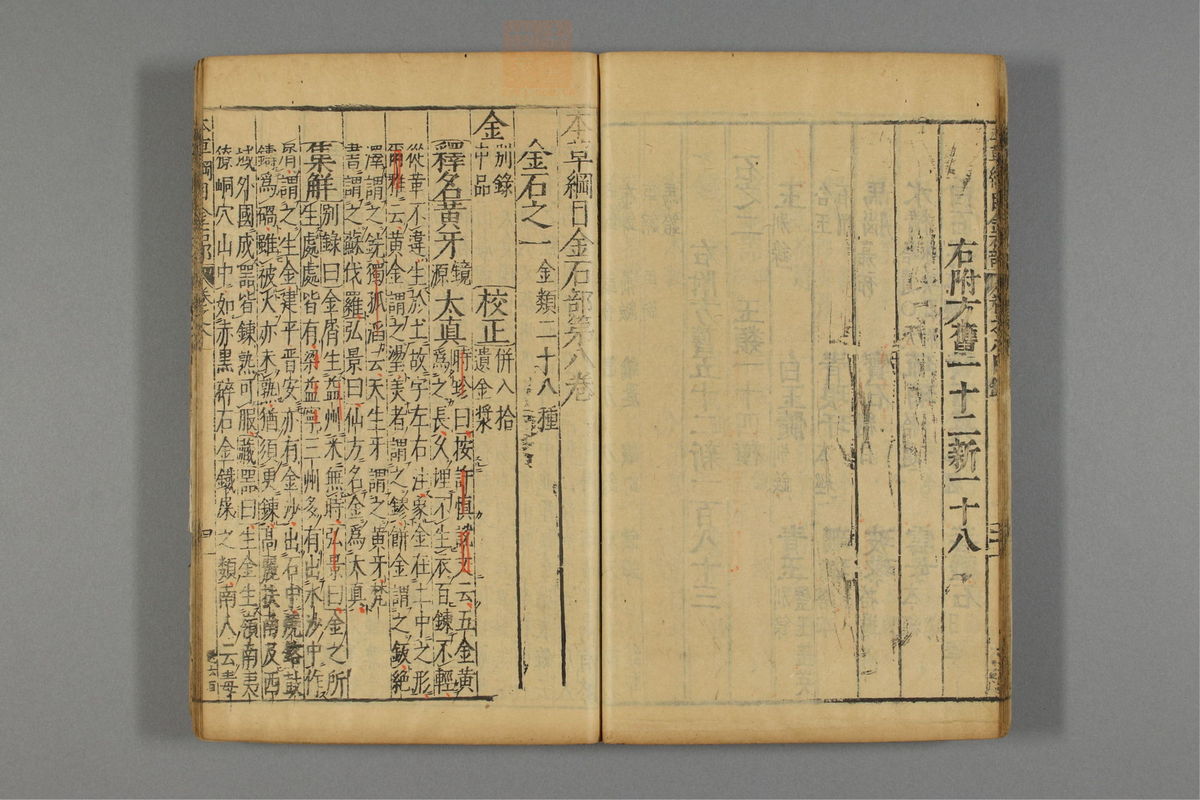 右附方舊一十二新一十八
本草綱目金石部第八卷
金石之一 金類二十八種
金 別錄中品 校正 併入拾遺金漿
釋名黃牙 鏡源 太真 時珍曰按許慎說文云五金黃
爲之長久埋不生衣百鍊不輕
從革不違生於土故字左右注象金在土中之形
爾雅云黃金謂之璗美者謂之鏐餅金謂之鈑絕
澤謂之銑獨孤滔云天生牙謂之黃牙梵
書謂之蘇伐羅弘景曰仙方名金爲太真
集解 別錄曰金屑生益州采無時弘景曰金之所
生處處皆有梁益寧三州多有出水沙中作
屑謂之生金建平晋安亦有金沙出石中燒鎔鼓
鑄爲碢雖被火亦未熟猶須更鍊高麗扶南及西
域外國成器皆鍊熟可服藏器曰生金生嶺南夷
獠峒穴山中如赤黑碎石金鐵屎之類南人云毒